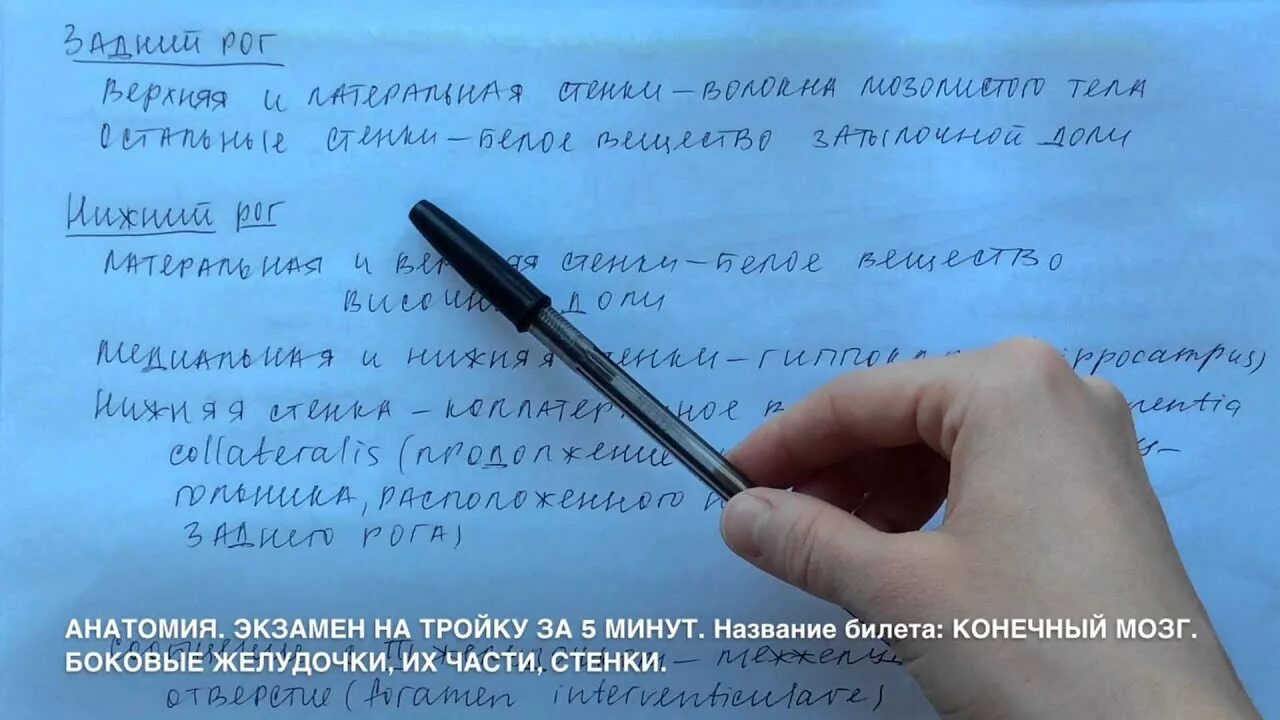 Задний рог
Верхняя и латеральная стенки – волокна мозолистого тела
Остальные стенки – белое вещество затылочной доли
Нижний рог
Латеральная и стенки – белое вещество
доли
Медиальная и нижняя стенки –
Нижняя стенка –
collateralis (продолжение
гольника, расположенного
заднего рога)
АНАТОМИЯ. ЭКЗАМЕН НА ТРОЙКУ ЗА 5 МИНУТ. Название билета: КОНЕЧНЫЙ МОЗГ.
БОКОВЫЕ ЖЕЛУДОЧКИ, ИХ ЧАСТИ, СТЕНКИ.
отверстие (foramen interventiculare)